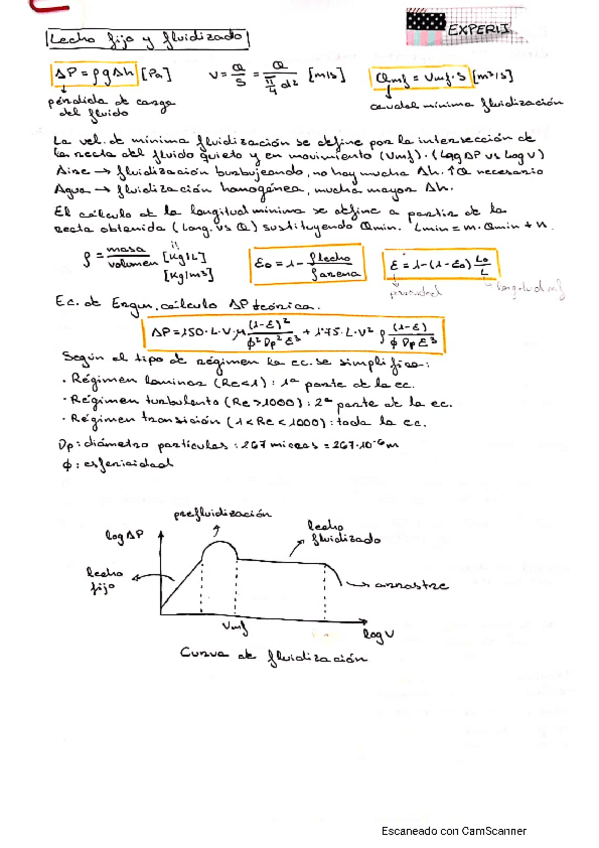 EXPERI
Lecho fijo y fluidizado
ΔP = ρgΔh [Pa]
V = Q/S = Q/(π/4 d²) [m/s]
Qmf = Vmf·S [m³/s]
pérdida de carga
del fluido
caudal mínima fluidización
La vel. de mínima fluidización se define por la intersección de
la recta del fluido quieto y en movimiento (Vmf). (Log ΔP vs Log V)
Aire → fluidización burbujeando, no hay mucha Δh. ↑Q necesario
Agua → fluidización homogénea, mucha mayor Δh.
El cálculo de la longitud mínima se define a partir de la
recta obtenida (Long. vs Q) sustituyendo Qmin. Lmin = m·Qmin + n.
ρ = masa/volumen [Kg/L] = [Kg/m³]
ε₀ = 1 - ρlecho/ρarena
ε = 1 - (1-ε₀) L₀/L
porosidad
longitud mf
Ec. de Ergun, cálculo ΔP teórica.
ΔP = 150·L·V·μ (1-ε)²/(ϕ² Dp² ε³) + 1'75·L·V² ρ (1-ε)/(ϕ Dp ε³)
Según el tipo de régimen la ec. se simplifica:
· Régimen laminar (Re<1): 1ª parte de la ec.
· Régimen turbulento (Re>1000): 2ª parte de la ec.
· Régimen transición (1<Re<1000): toda la ec.
Dp: diámetro partículas: 267 micras = 267·10⁻⁶ m
ϕ: esfericidad
prefluidización
log ΔP
lecho
fluidizado
lecho
fijo
arrastre
Vmf
log V
Curva de fluidización
Escaneado con CamScanner